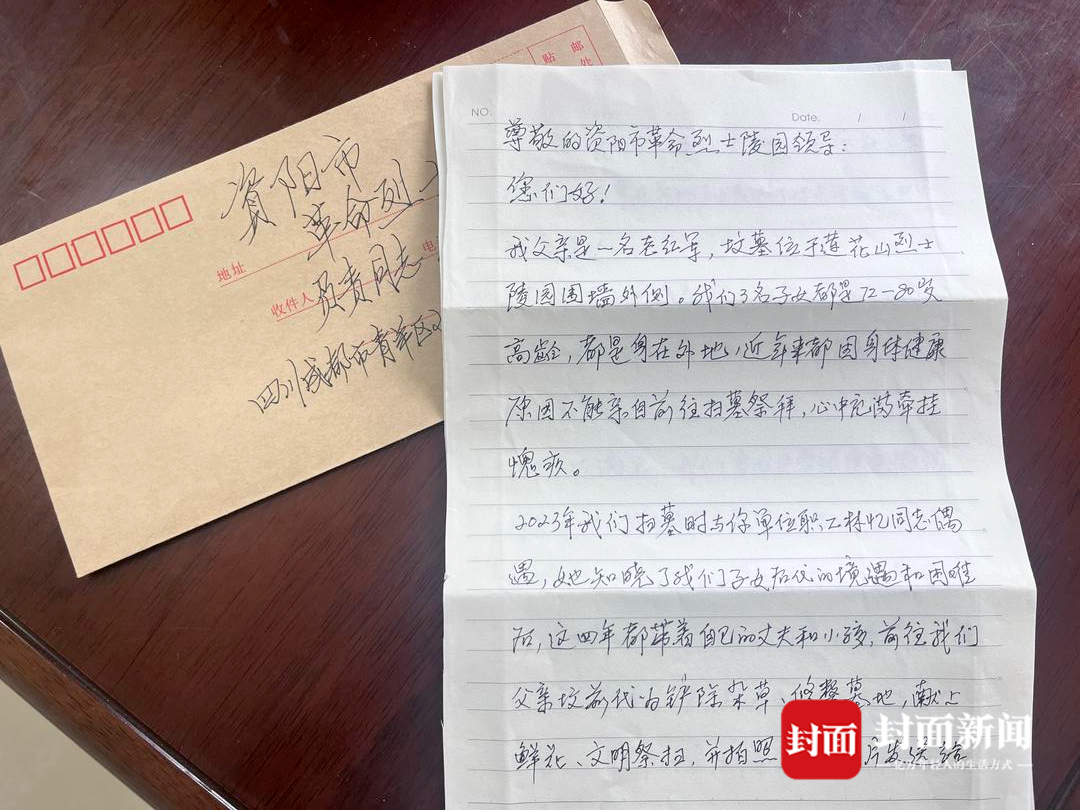 贴 邮
处
资阳市
革命烈士
地址
电
收件人
负责同志
四川成都市青羊区
NO.
Date. / /
尊敬的资阳市革命烈士陵园领导：
您们好！
我父亲是一名老红军，坟墓位于莲花山烈士
陵园围墙外侧。我们3名子女都是72-80岁
高龄，都是身在外地，近年来都因身体健康
原因不能亲自前往扫墓祭拜，心中充满牵挂
愧疚。
2023年我们扫墓时与你单位职工林忆同志偶
遇，她知晓了我们子女后代的境遇和困难
后，这四年都带着自己的丈夫和小孩，前往我们
父亲坟前代为铲除杂草、修整墓地，献上
鲜花、文明祭扫，并拍照 片发送给
封面
封面新闻
亿万年轻人的生活方式